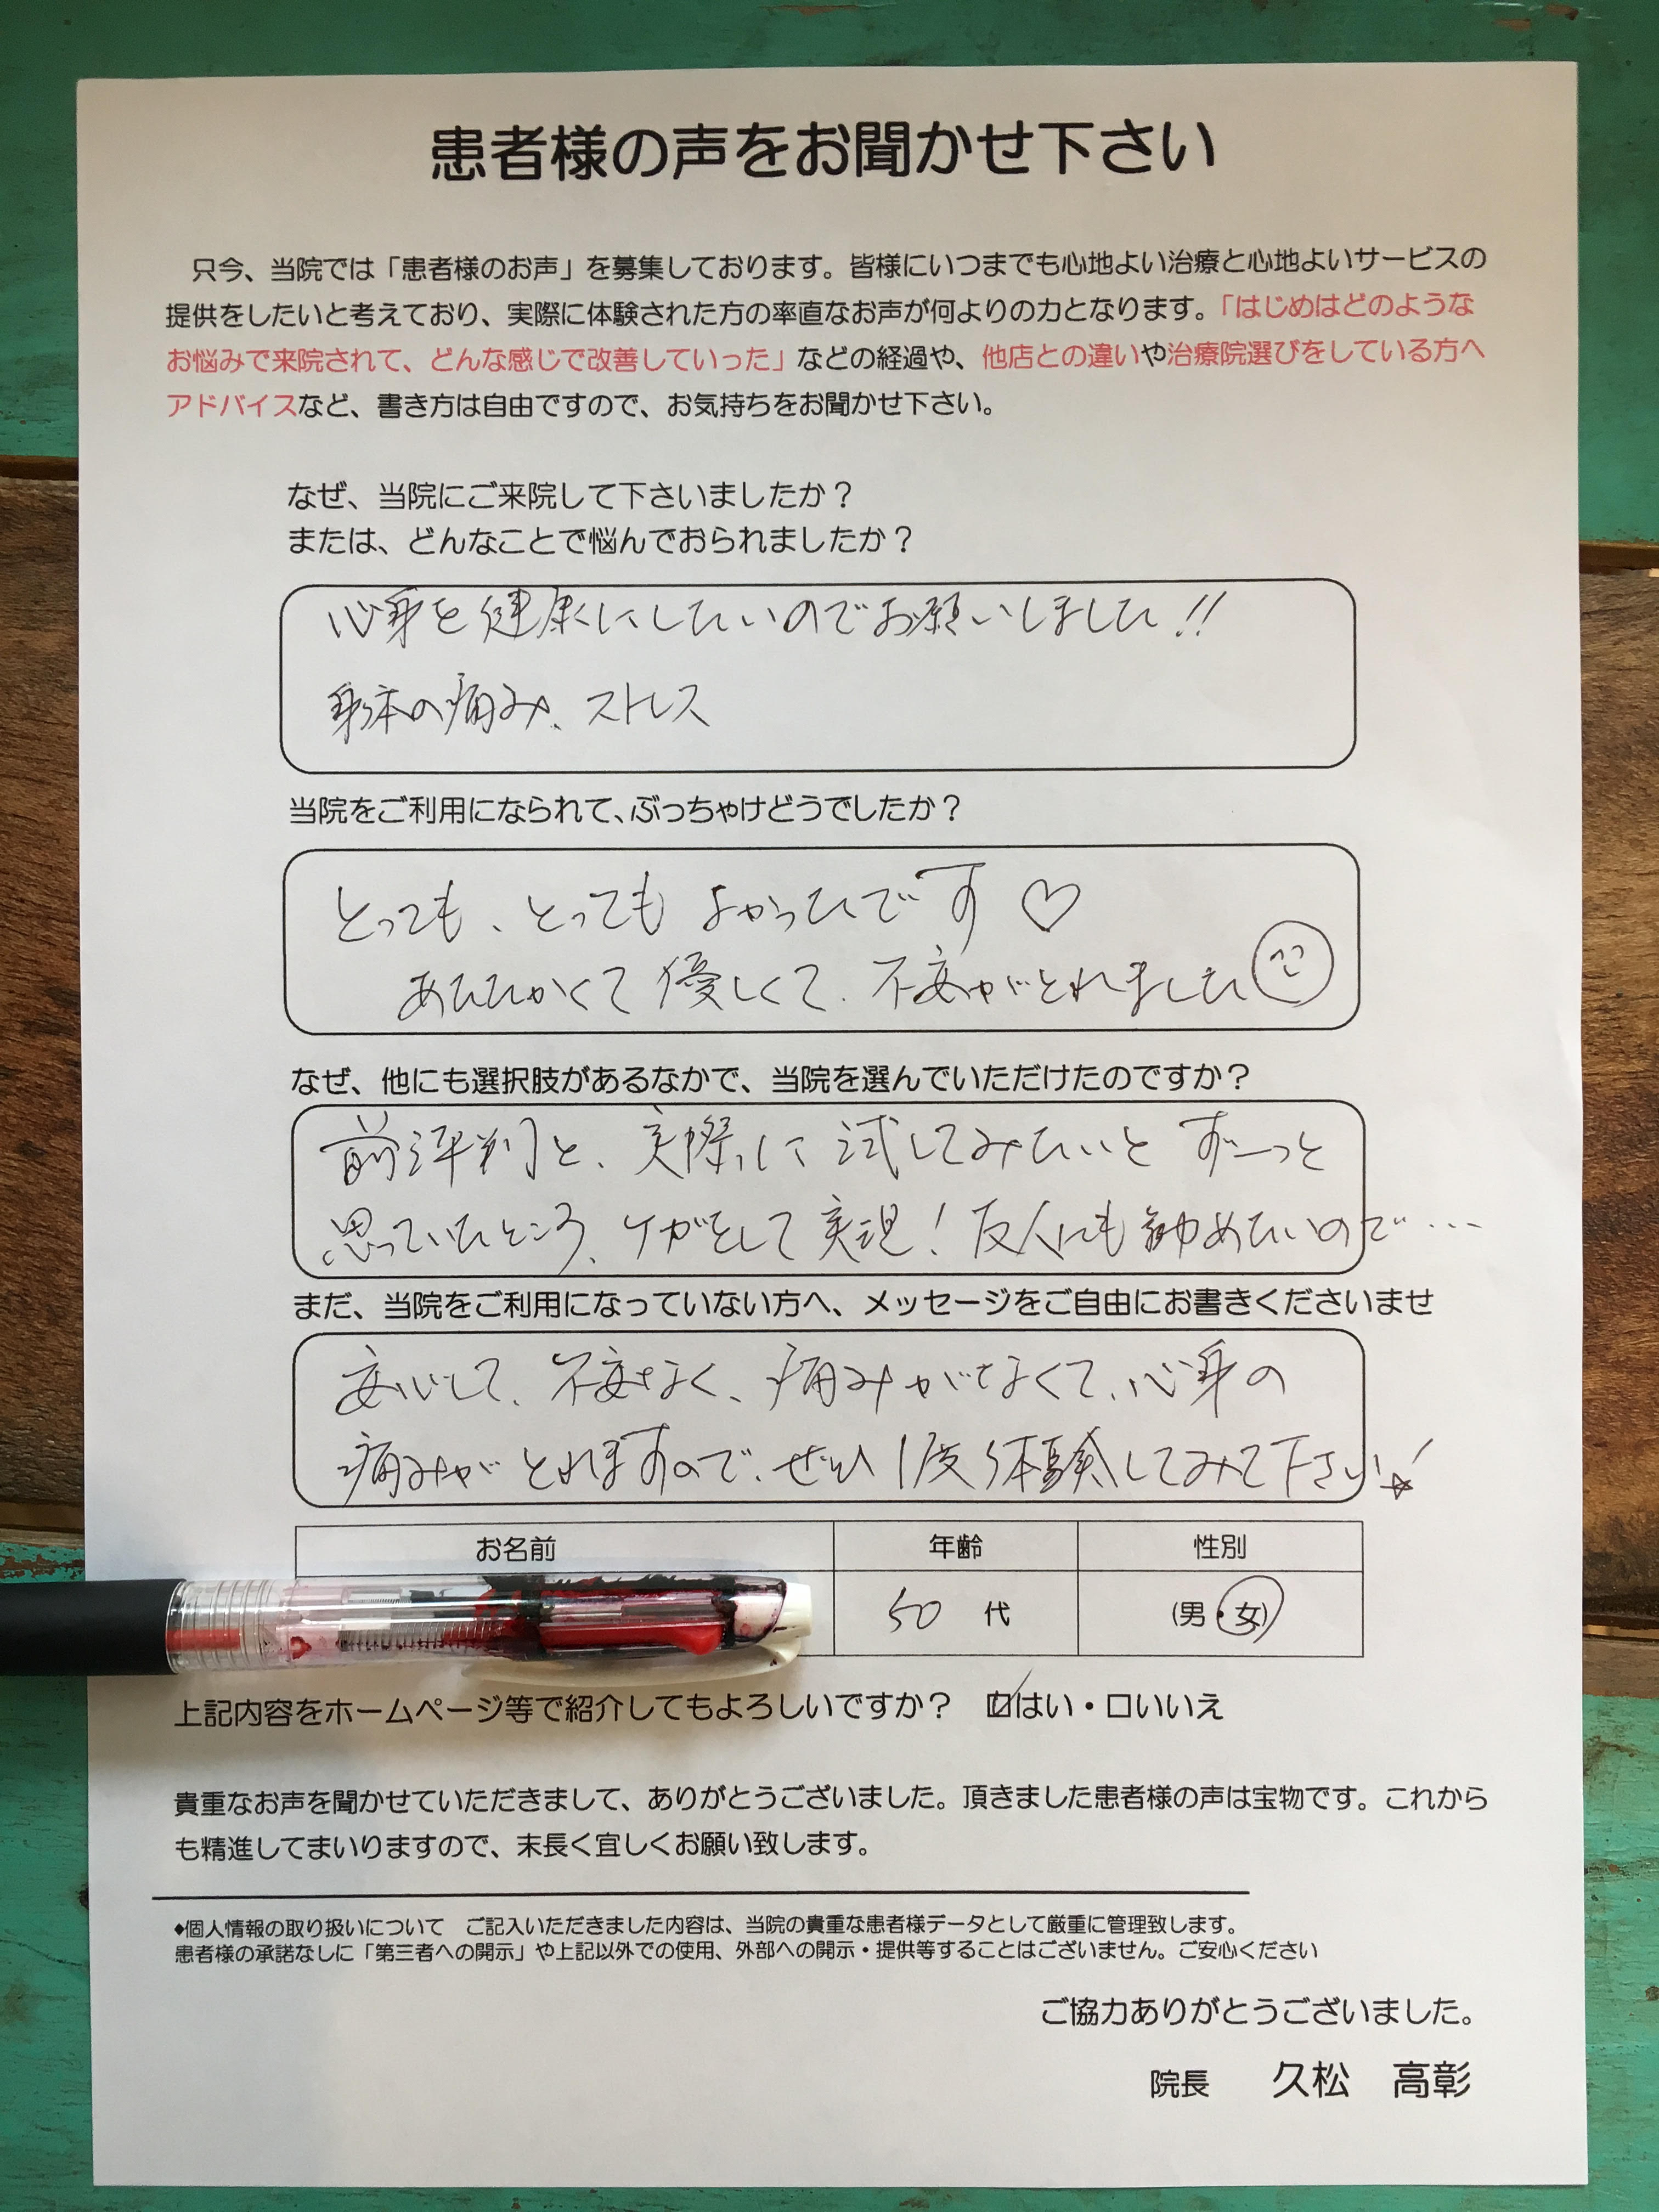 患者様の声をお聞かせ下さい
只今、当院では「患者様のお声」を募集しております。皆様にいつまでも心地よい治療と心地よいサービスの
提供をしたいと考えており、実際に体験された方の率直なお声が何よりの力となります。「はじめはどのような
お悩みで来院されて、どんな感じで改善していった」などの経過や、他店との違いや治療院選びをしている方へ
アドバイスなど、書き方は自由ですので、お気持ちをお聞かせ下さい。
なぜ、当院にご来院して下さいましたか？
または、どんなことで悩んでおられましたか？
心身を健康にしたいのでお願いしました!!
身体の痛み、ストレス
当院をご利用になられて、ぶっちゃけどうでしたか？
とっても、とっても よかったです♡
あたたかくて優しくて、不安がとれました
なぜ、他にも選択肢があるなかで、当院を選んでいただけたのですか？
前評判と、実際に試してみたいとずーっと
思っていたところ、ケガをして実現！友人にも勧めたいので…
まだ、当院をご利用になっていない方へ、メッセージをご自由にお書きくださいませ
安心して、不安なく、痛みがなくて、心身の
痛みがとれますので、ぜひ1度体験してみて下さい☆
お名前 年齢 性別
50 代 (男・女)
上記内容をホームページ等で紹介してもよろしいですか？ ☑はい・□いいえ
貴重なお声を聞かせていただきまして、ありがとうございました。頂きました患者様の声は宝物です。これから
も精進してまいりますので、末長く宜しくお願い致します。
◆個人情報の取り扱いについて ご記入いただきました内容は、当院の貴重な患者様データとして厳重に管理致します。
患者様の承諾なしに「第三者への開示」や上記以外での使用、外部への開示・提供等することはございません。ご安心ください
ご協力ありがとうございました。
院長 久松 高彰